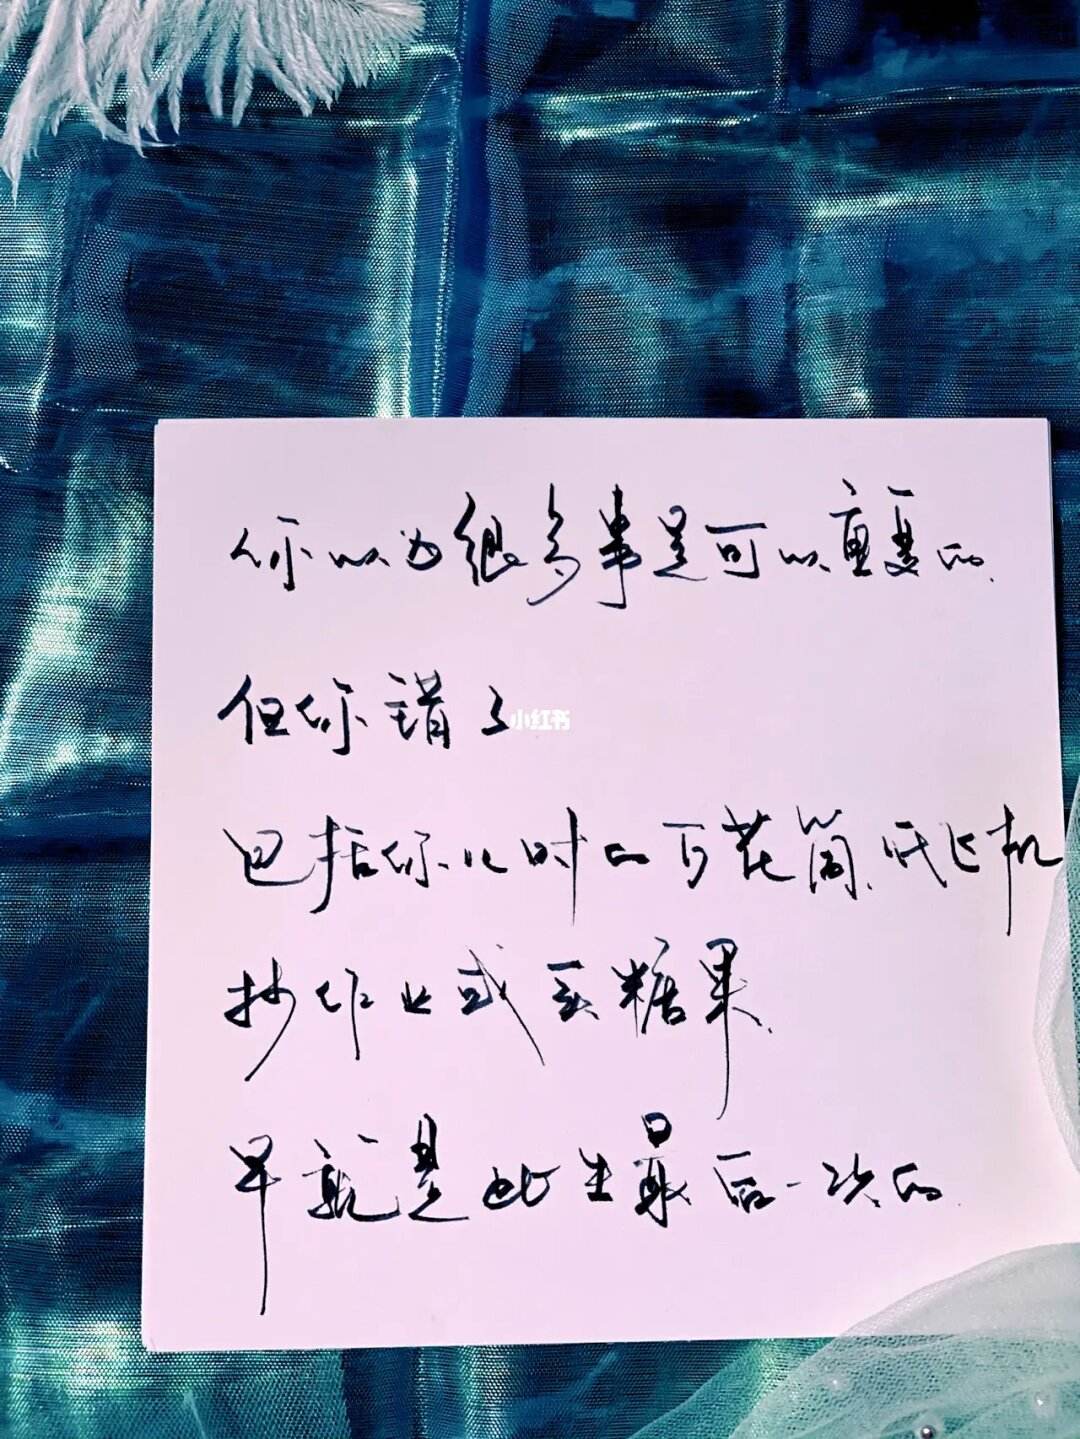 你以为很多事是可以重复的、
但你错了
小红书
包括你儿时的万花筒、纸飞机
抄作业或买糖果、
早就是此生最后一次的